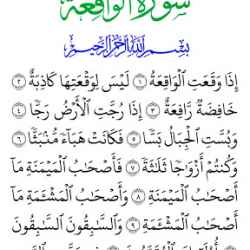 سُورَةُ الوَاقِعَة
بِسْمِ اللَّهِ الرَّحْمَٰنِ الرَّحِيمِ
إِذَا وَقَعَتِ ٱلْوَاقِعَةُ ١ لَيْسَ لِوَقْعَتِهَا كَاذِبَةٌ ٢
خَافِضَةٌ رَّافِعَةٌ ٣ إِذَا رُجَّتِ ٱلْأَرْضُ رَجًّا ٤
وَبُسَّتِ ٱلْجِبَالُ بَسًّا ٥ فَكَانَتْ هَبَآءً مُّنۢبَثًّا ٦
وَكُنتُمْ أَزْوَٰجًا ثَلَٰثَةً ٧ فَأَصْحَٰبُ ٱلْمَيْمَنَةِ مَآ
أَصْحَٰبُ ٱلْمَيْمَنَةِ ٨ وَأَصْحَٰبُ ٱلْمَشْـَٔمَةِ مَآ
أَصْحَٰبُ ٱلْمَشْـَٔمَةِ ٩ وَٱلسَّٰبِقُونَ ٱلسَّٰبِقُونَ